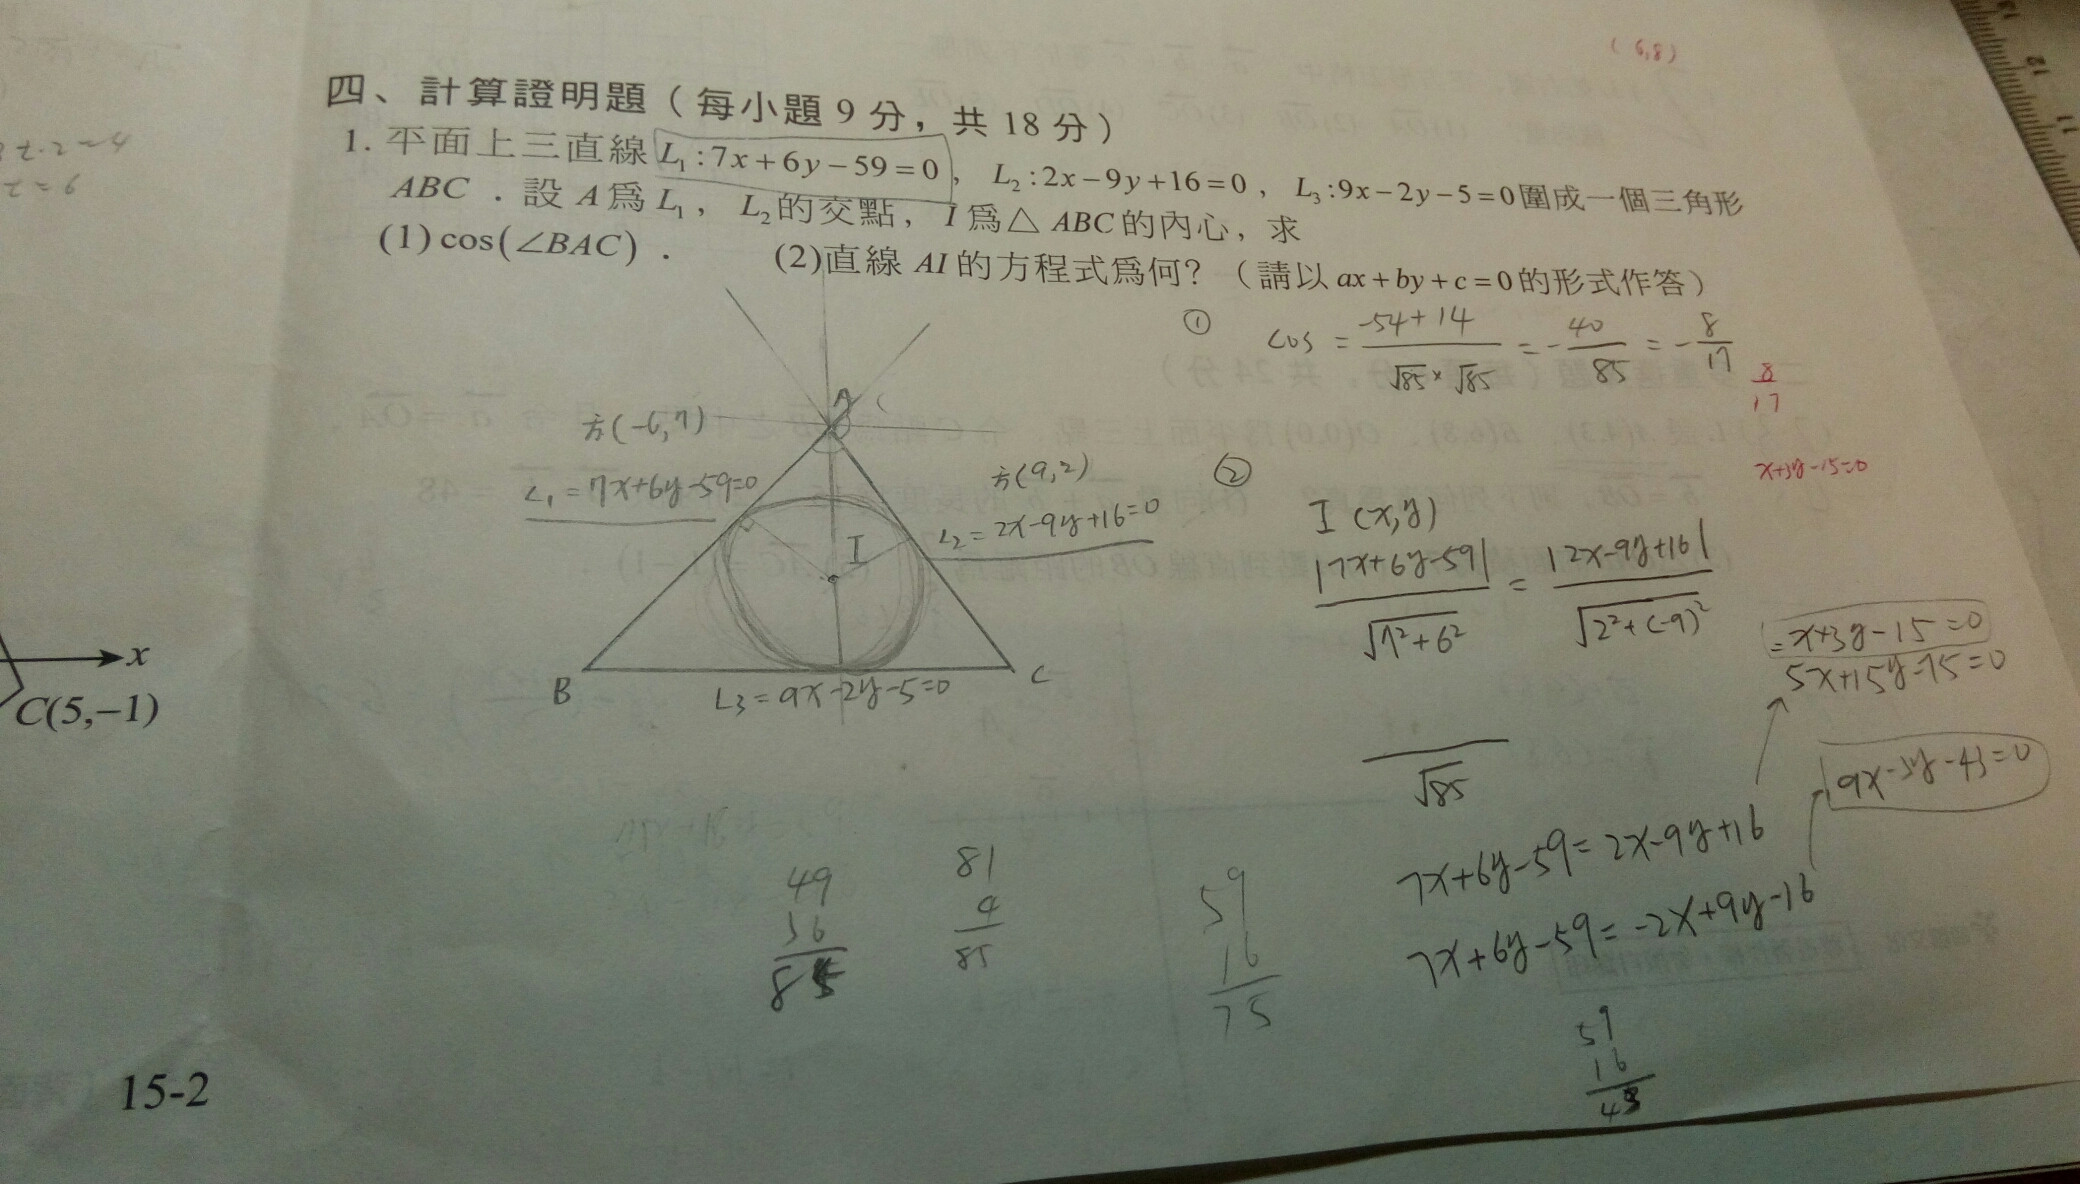 (6,8)
四、計算證明題（每小題 9 分，共 18 分）
1. 平面上三直線 L₁:7x+6y−59=0，L₂:2x−9y+16=0，L₃:9x−2y−5=0圍成一個三角形
ABC．設 A 為 L₁，L₂的交點，I 為△ABC 的內心，求
(1) cos(∠BAC)． (2)直線 AI 的方程式為何？（請以 ax+by+c=0 的形式作答）
t·2=4
t=6
① cos = (-54+14)/(√85×√85) = -40/85 = -8/17
8/17
x+3y-15=0
A
方(-6,7)
L₁=7x+6y-59=0
方(9,2)
L₂=2x-9y+16=0
I
B
C
L₃=9x-2y-5=0
② I(x,y)
|7x+6y-59|/√7²+6² = |2x-9y+16|/√2²+(-9)²
=x+3y-15=0
5x+15y-75=0
√85
9x-3y-43=0
7x+6y-59=2x-9y+16
7x+6y-59=-2x+9y-16
49
36
85
81
4
85
59
16
75
59
16
43
x
C(5,−1)
15-2